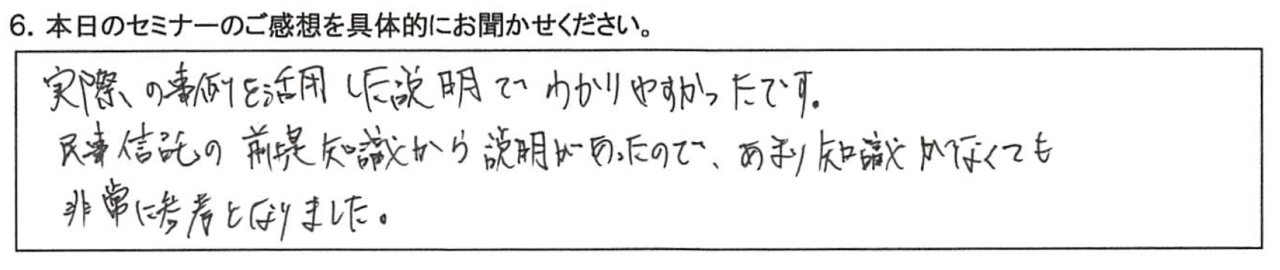 6. 本日のセミナーのご感想を具体的にお聞かせください。
実際の事例を活用した説明でわかりやすかったです。
民事信託の前提知識から説明があったので、あまり知識がなくても
非常に参考となりました。